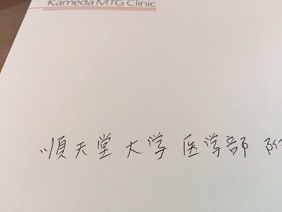 Kameda MTG Clinic
順天堂大学医学部 附